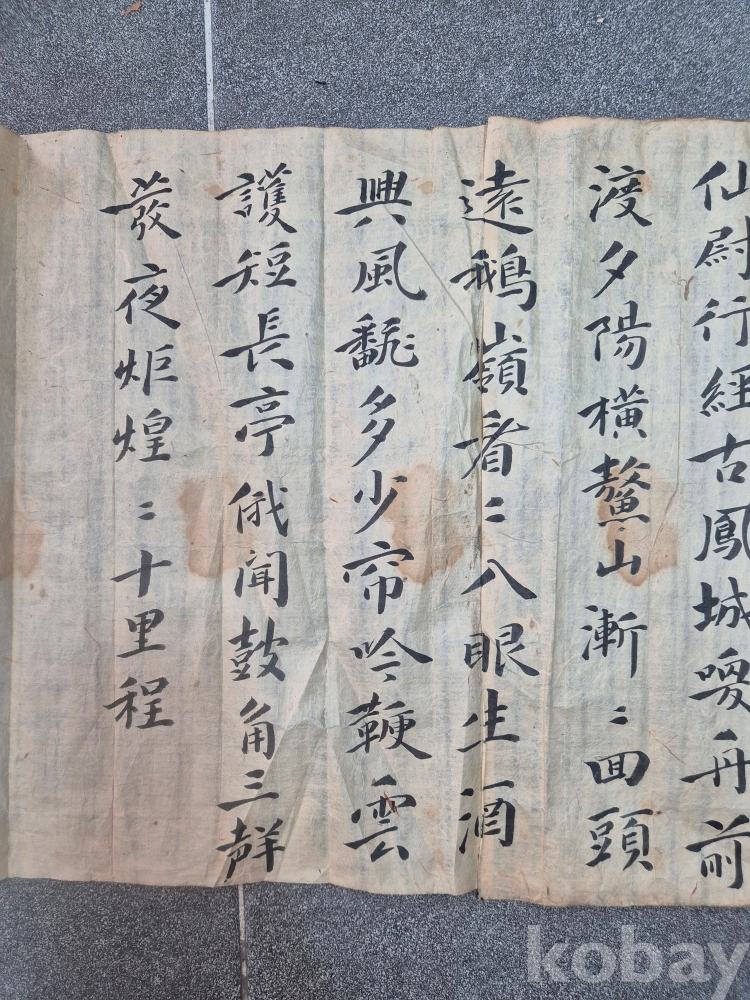 仙尉行經古鳳城喚舟前
渡夕陽橫鰲山漸〻回頭
遠鵝嶺看〻入眼生酒
興風飜多少帘吟鞭雲
護短長亭俄聞鼓角三
發夜炬煌〻十里程
kobay